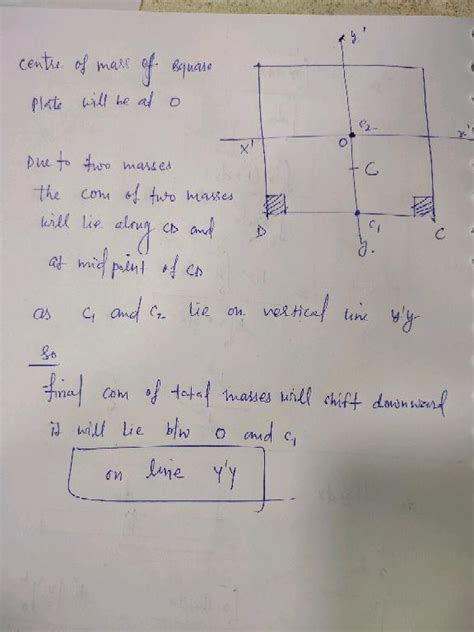 centre of mass of square
plate will be at O
Due to two masses
the com of two masses
will lie along CD and
at mid point of CD
as C1 and C2 lie on vertical line y'y
So
final com of total masses will shift downward
it will lie b/w O and C1
on line Y'Y
y'
C2
O
X'
x'
C
D
C1
C
y